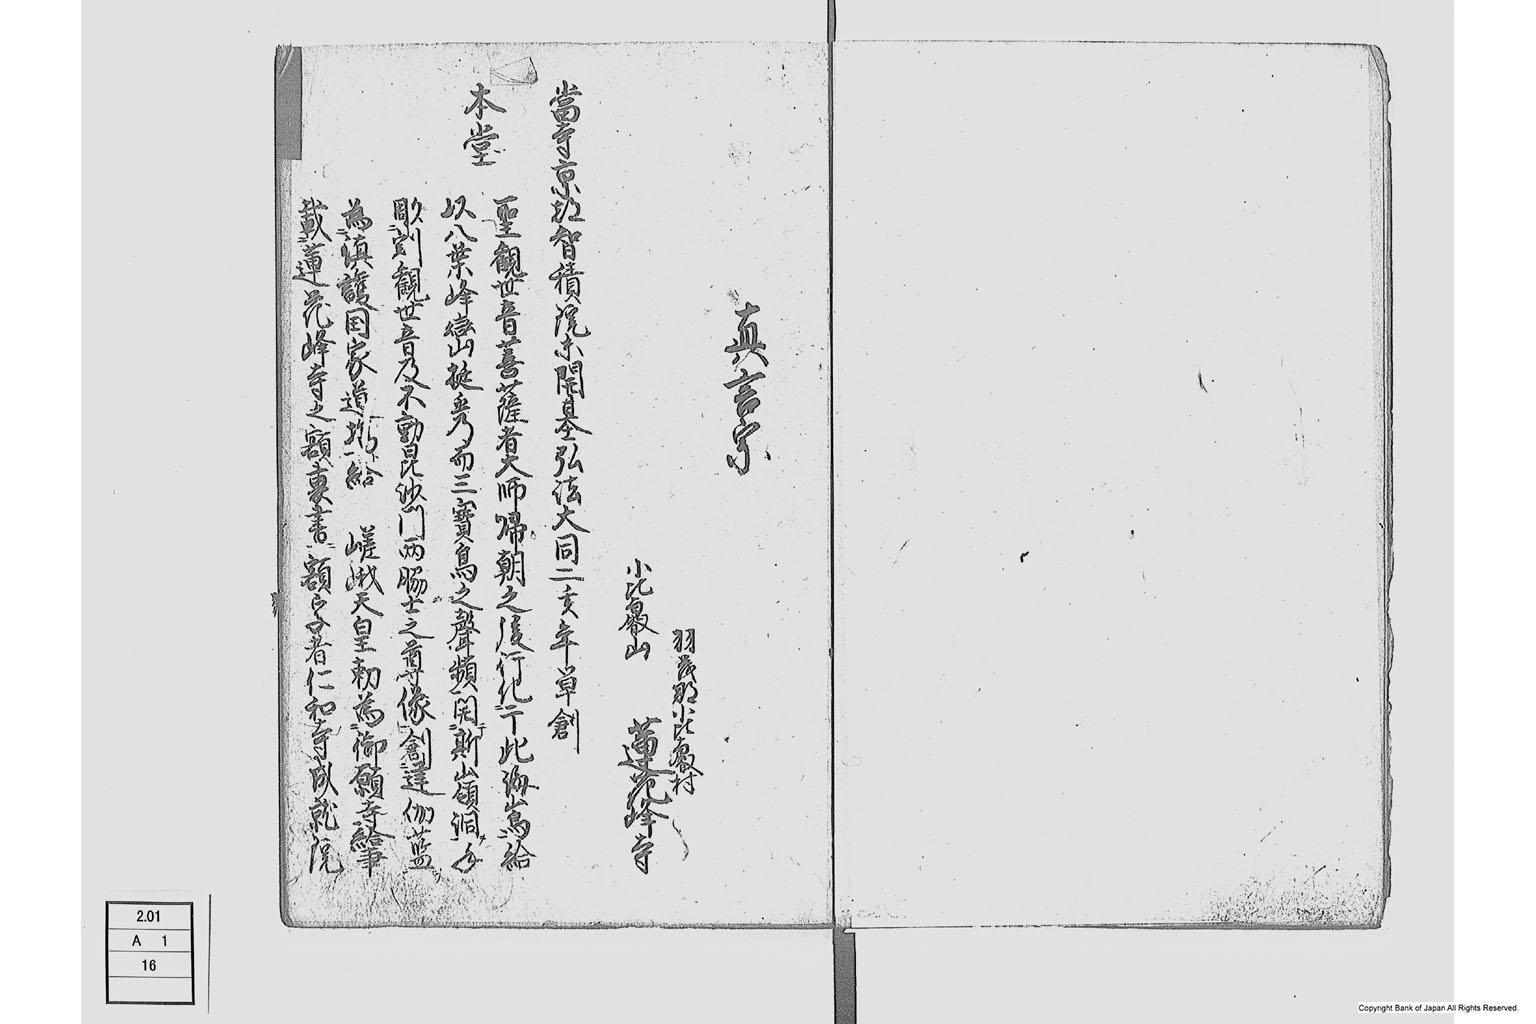 真言宗
羽茂郡小比叡村
小比叡山 蓮花峰寺
當寺京都智積院末開基弘法大同二亥年草創
本堂
聖観世音菩薩者大師帰朝之後行化于此海嶌給
以八葉峰巒挺秀而三寶鳥之聲頻聞斯山嶺洞手
彫刻観世音及不動毘沙門両脇士之尊像創建伽藍
為鎮護国家道場給 嵯峨天皇勅為御願寺給筆
載蓮花峰寺之額裏書額字者仁和寺成就院
2.01
A 1
16
Copyright Bank of Japan All Rights Reserved.